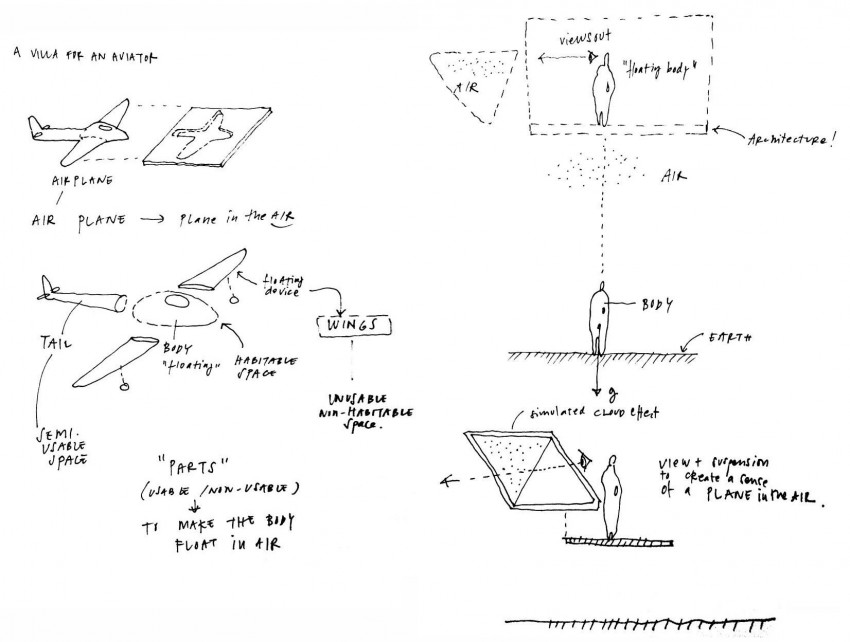 A VILLA FOR AN AVIATOR
AIRPLANE
AIR PLANE → Plane in the AIR
floating
device
WINGS
TAIL
BODY
"floating"
HABITABLE
SPACE
UNUSABLE
NON-HABITABLE
Space.
SEMI.
USABLE
SPACE
"PARTS"
(USABLE / NON-USABLE)
TO MAKE THE BODY
FLOAT IN AIR
views out
"floating body"
AIR
Architecture!
AIR
BODY
EARTH
g
simulated CLOUD effect
view + suspension
to create a sense
of a PLANE in the AIR.